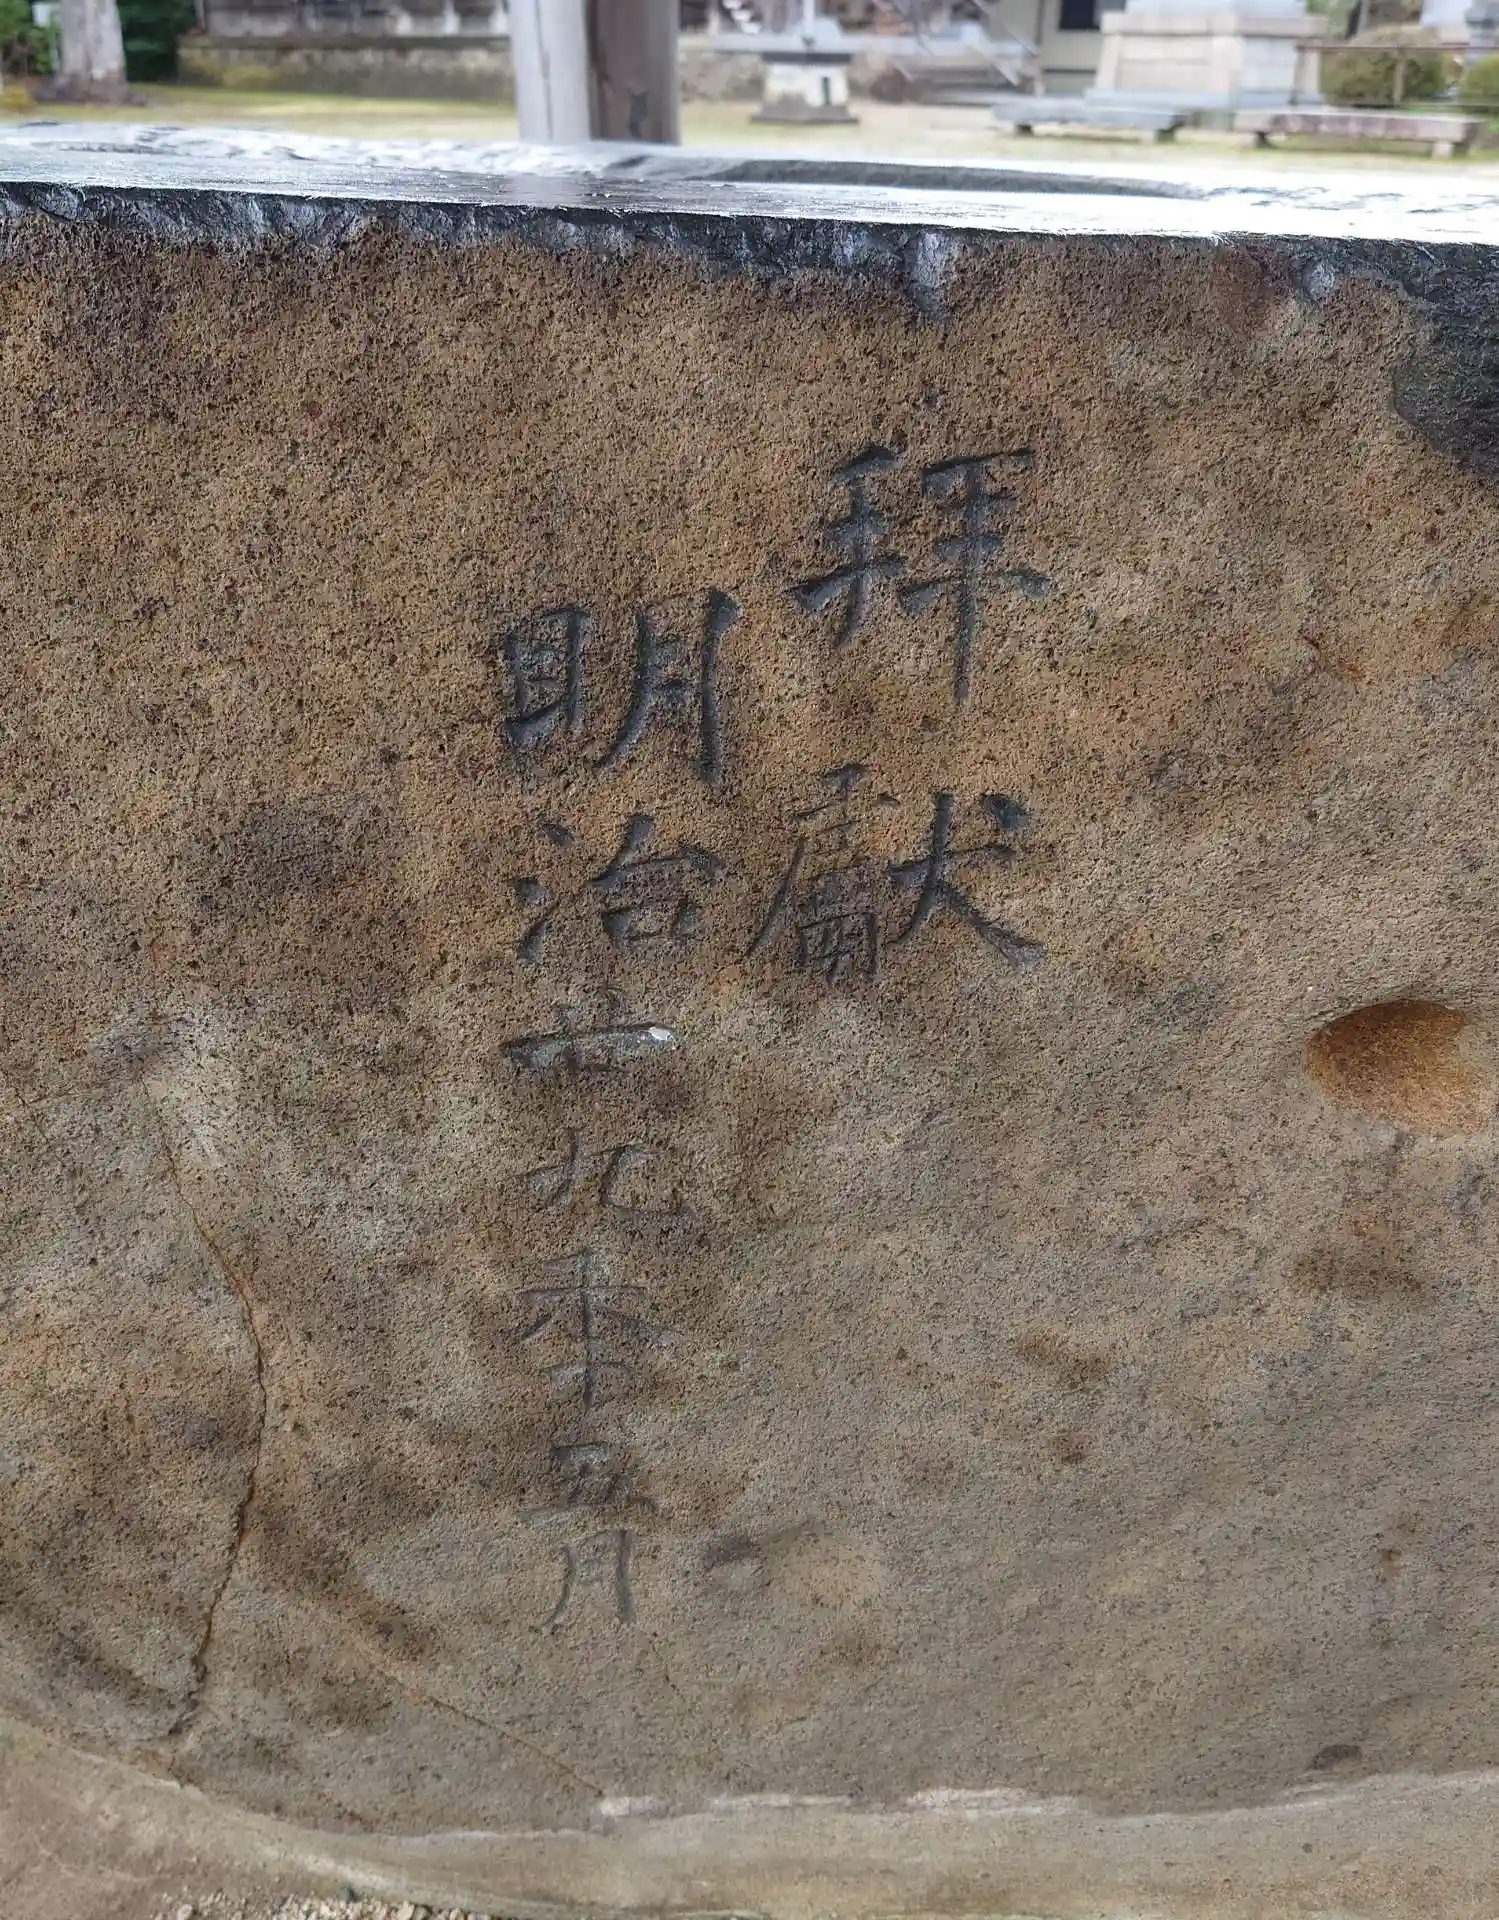 拜獻
明治廿九年五月